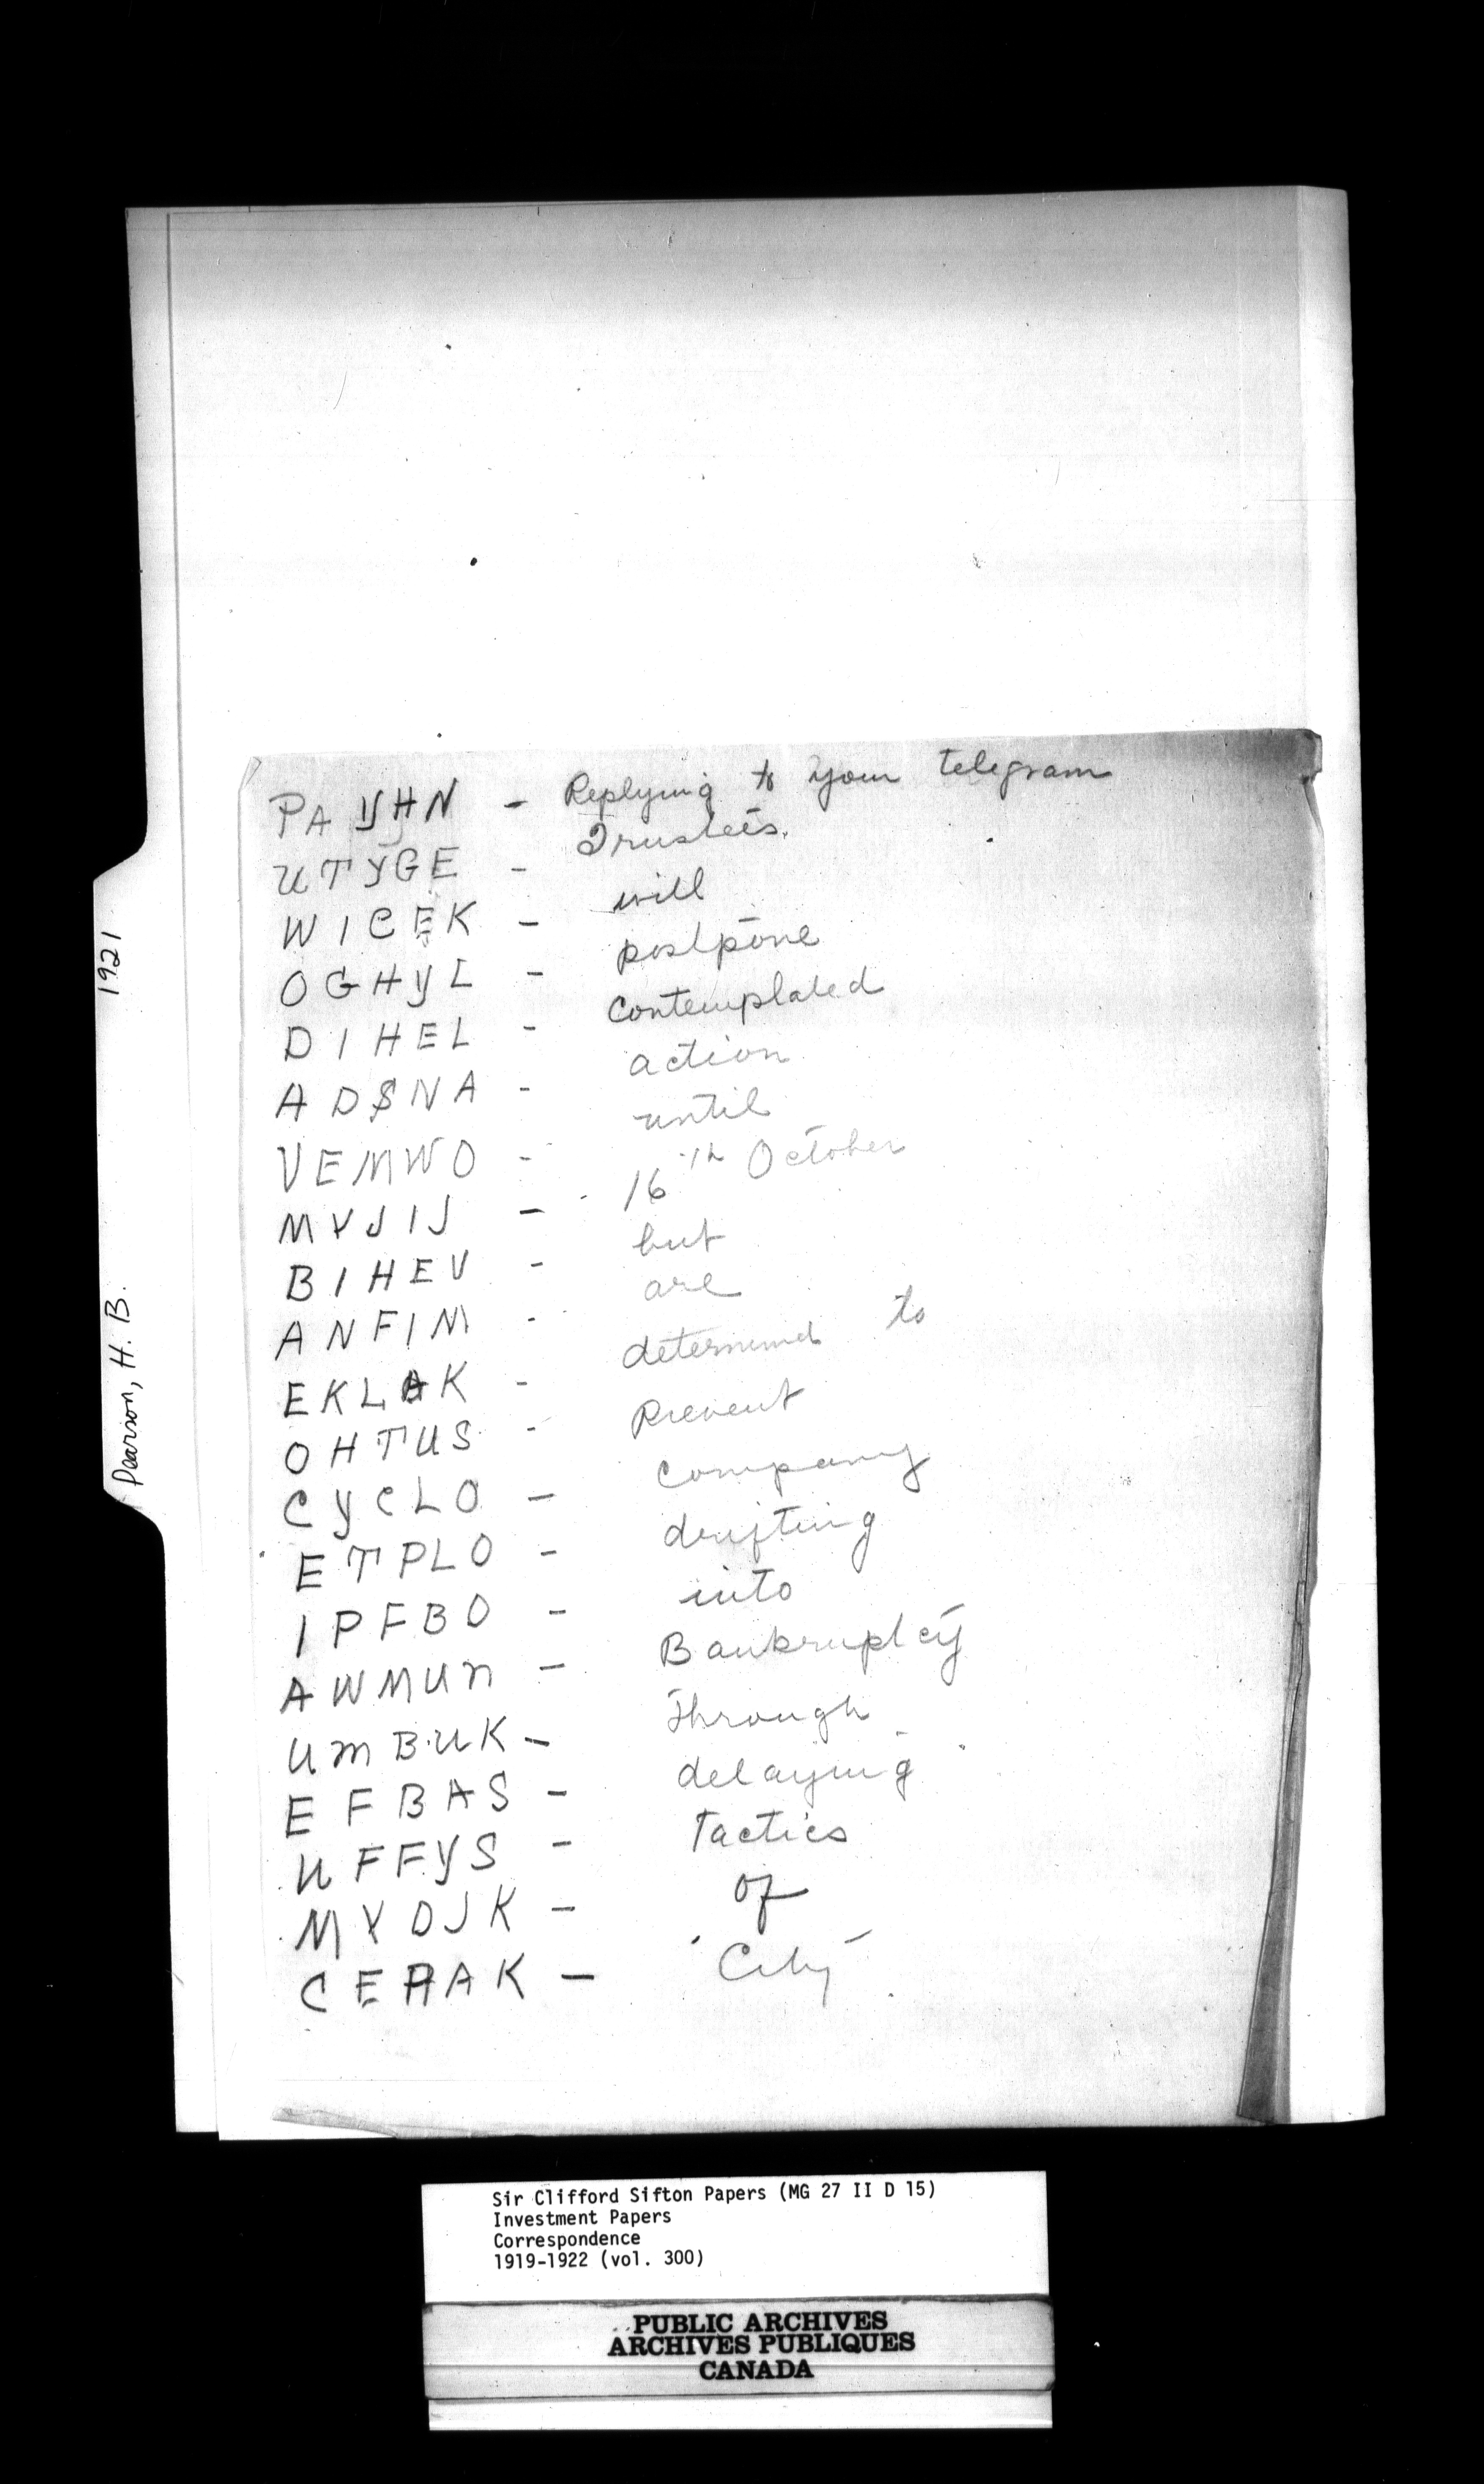 PAYHN - Replying to your telegram
UTYGE - Trustees.
WICEK - will
OGHYL - postpone
DIHEL - Contemplated
ADSNA - action
VEMWO - until
MYJIJ - 16th October
BIHEV - but
ANFIM - are
EKLAK - determined to
OHTUS - Prevent
CYCLO - Company
ETPLO - drifting
IPFBO - into
AWMUN - Bankruptcy
UMBUK - Through
EFBAS - delaying
UFFYS - Tactics
MYDJK - of
CEHAK - City
1921
Pearson, H. B.
Sir Clifford Sifton Papers (MG 27 II D 15)
Investment Papers
Correspondence
1919-1922 (vol. 300)
PUBLIC ARCHIVES
ARCHIVES PUBLIQUES
CANADA